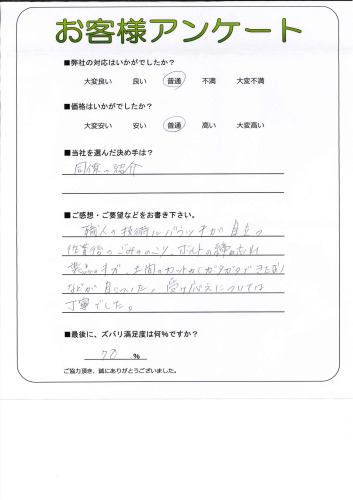 お客様アンケート
■弊社の対応はいかがでしたか？
大変良い 良い 普通 不満 大変不満
■価格はいかがでしたか？
大変安い 安い 普通 高い 大変高い
■当社を選んだ決め手は？
同僚の紹介
■ご感想・ご要望などをお書き下さい。
職人の技術にバラツキが目立つ
作業後のごみののこり、ボルトの締め忘れ
土間のカットがガタガタできたない
などが気になった。受け応えについては
丁寧でした。
■最後に、ズバリ満足度は何%ですか？
70 %
ご協力頂き、誠にありがとうございました。